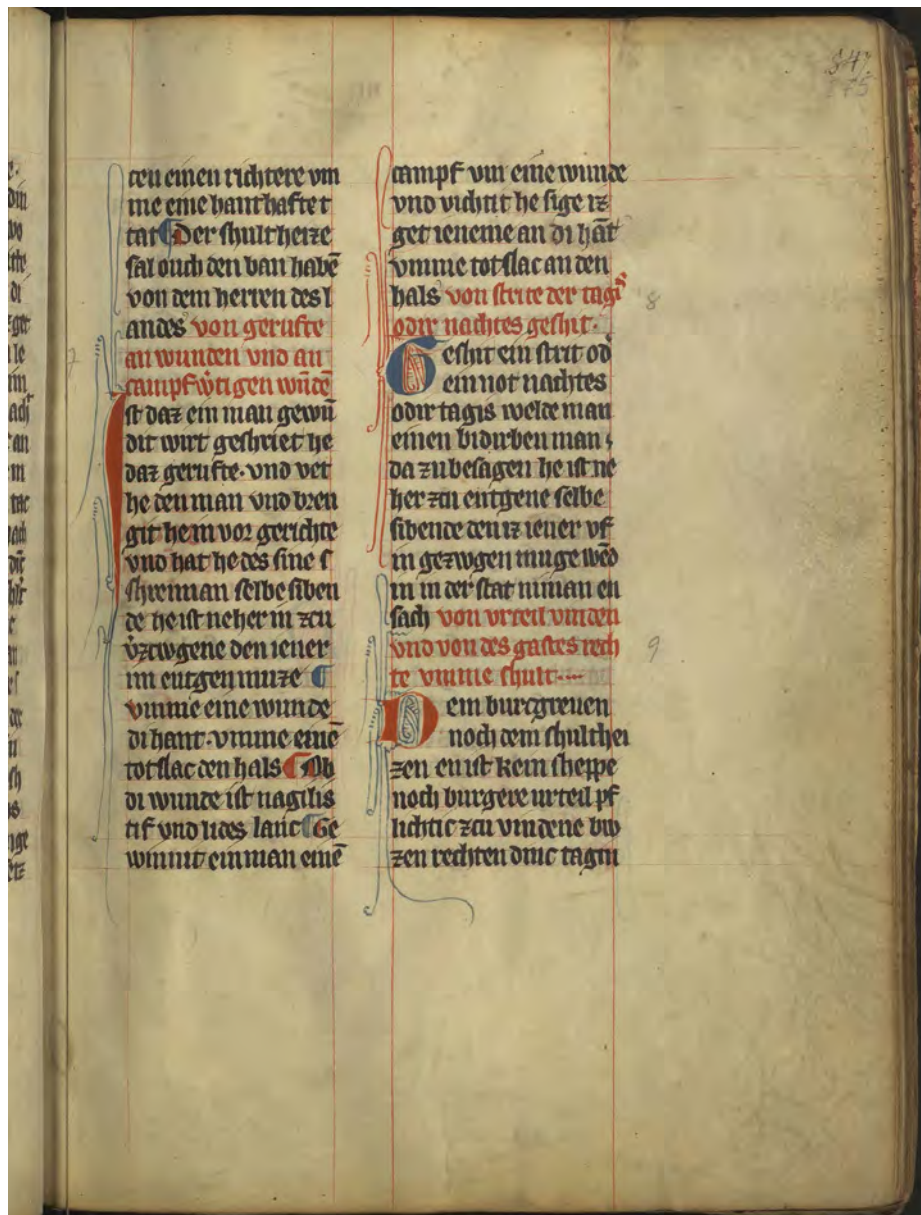 ten einen richtere vm
me eine hanthaftet
tat ¶ Der shultheize
sal ouch den ban habē
von dem herren des l
andes von gerufte
an wunden vnd an
campfw̓tigen wūdē
Ist daz ein man gewū
dit wirt geshriet he
daz gerufte · vnd vet
he den man vnd bren
git hem vor gerichte
vnd hat he des sine s
shreiman selbe siben
de he ist neher in zcu
v̓zcwgene den iener
im entgen muze ¶
vmme eine wunde
di hant · vmme einē
totslac den hals ¶ Ob
di wunde ist nagilis
tif vnd lides lanc ¶ Ge
winnit ein man einē
campf vm eine wunde
vnd vichtit he sige iz
get ieneme an di hāt
vmme totslac an den
hals von strite der tagis
odir nachtes geshit ·
Geshit ein strit od̓
ein not nachtes
odir tagis welde man
einen bidirben man
da zu besagen he ist ne
her zcu entgene selbe
sibende den iz iener vf
in gezwgen muge wēd
in in der stat niman en
sach von vrteil vinden
vnd von des gastes rech
te vmme shult
Dem burcgreuen
noch dem shulthei
zen en ist kein sheppe
noch burgere urteil pf
lichtic zcu vindene bw
zen rechten dinc tagin
8
9
7